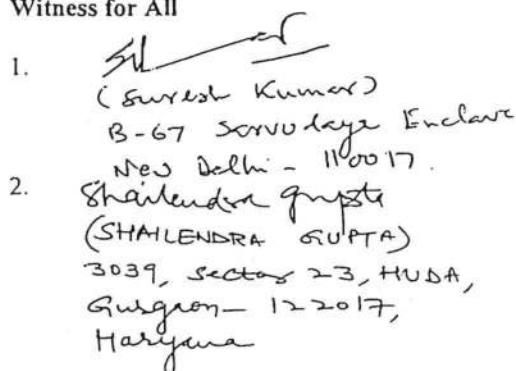 Witness for All
1.
(Suresh Kumar)
B-67 Sarvodaya Enclave
New Delhi - 110017.
2. Shailendra Gupta
(SHAILENDRA GUPTA)
3039, Sector 23, HUDA,
Gurgaon - 122017,
Haryana